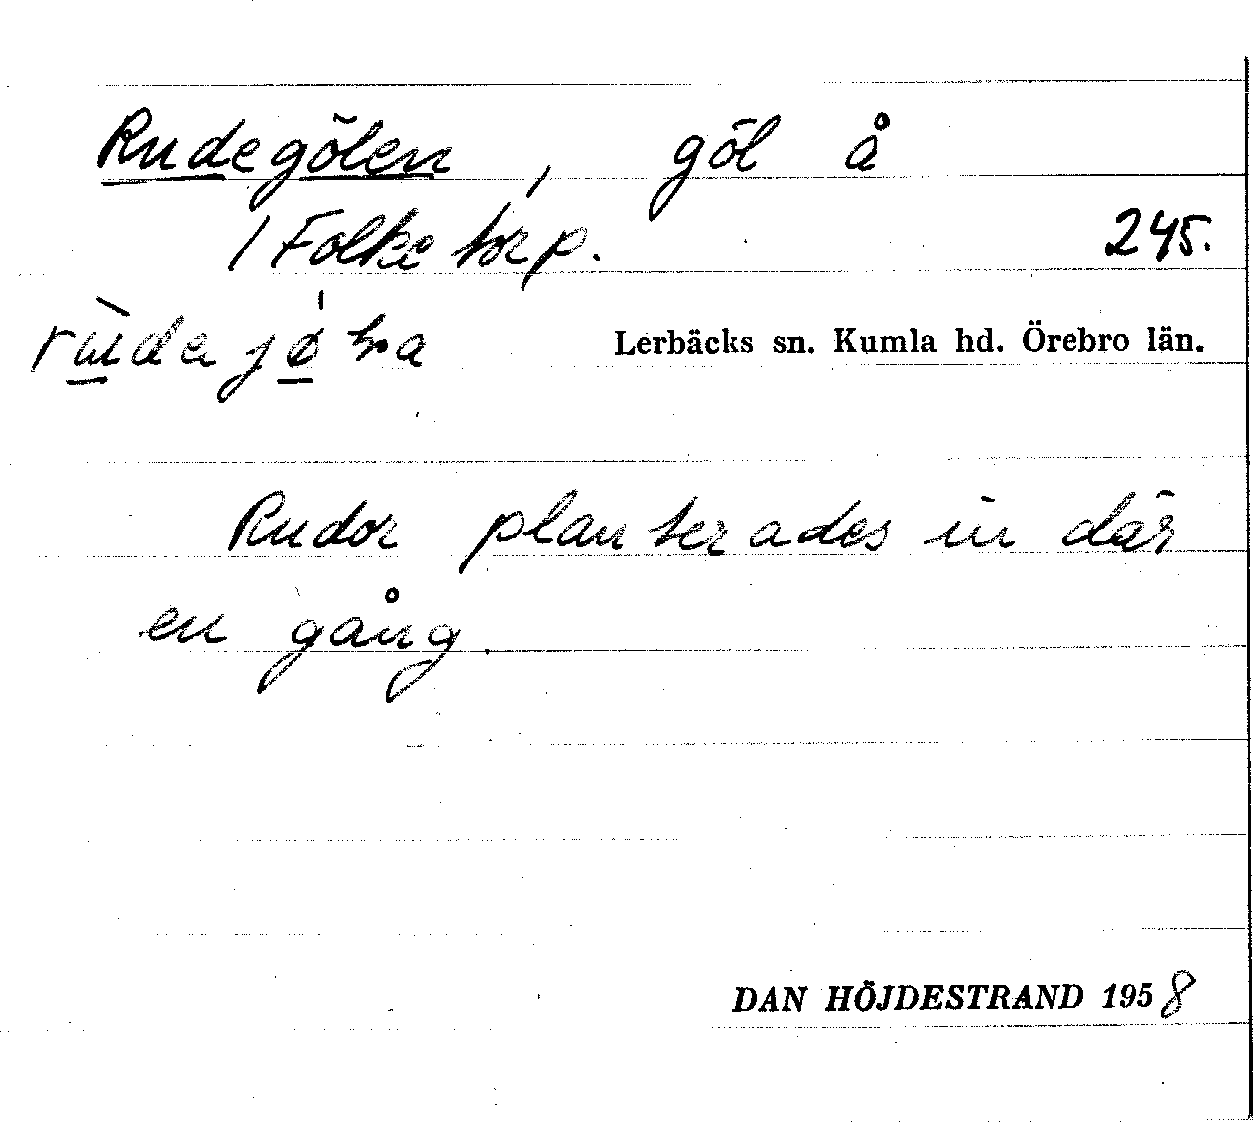 Rudegölen, göl å
1 Folketorp. 245.
Lerbäcks sn. Kumla hd. Örebro län.
Rudor planterades in där
en gång.
DAN HÖJDESTRAND 1958